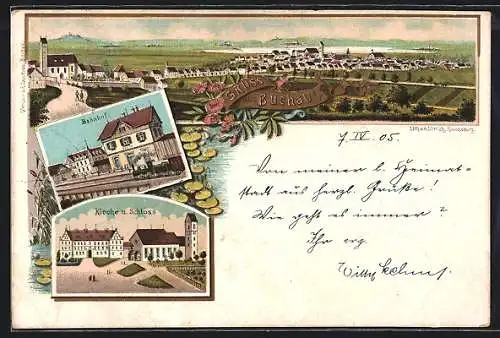 Gruss aus
Buchau
Bahnhof
Kirche u. Schloss
7. IV. 05.
Von meiner l. Heimat-
stadt aus herzl. Grüße!
Wie geht es immer?
Ihr erg.
Willy